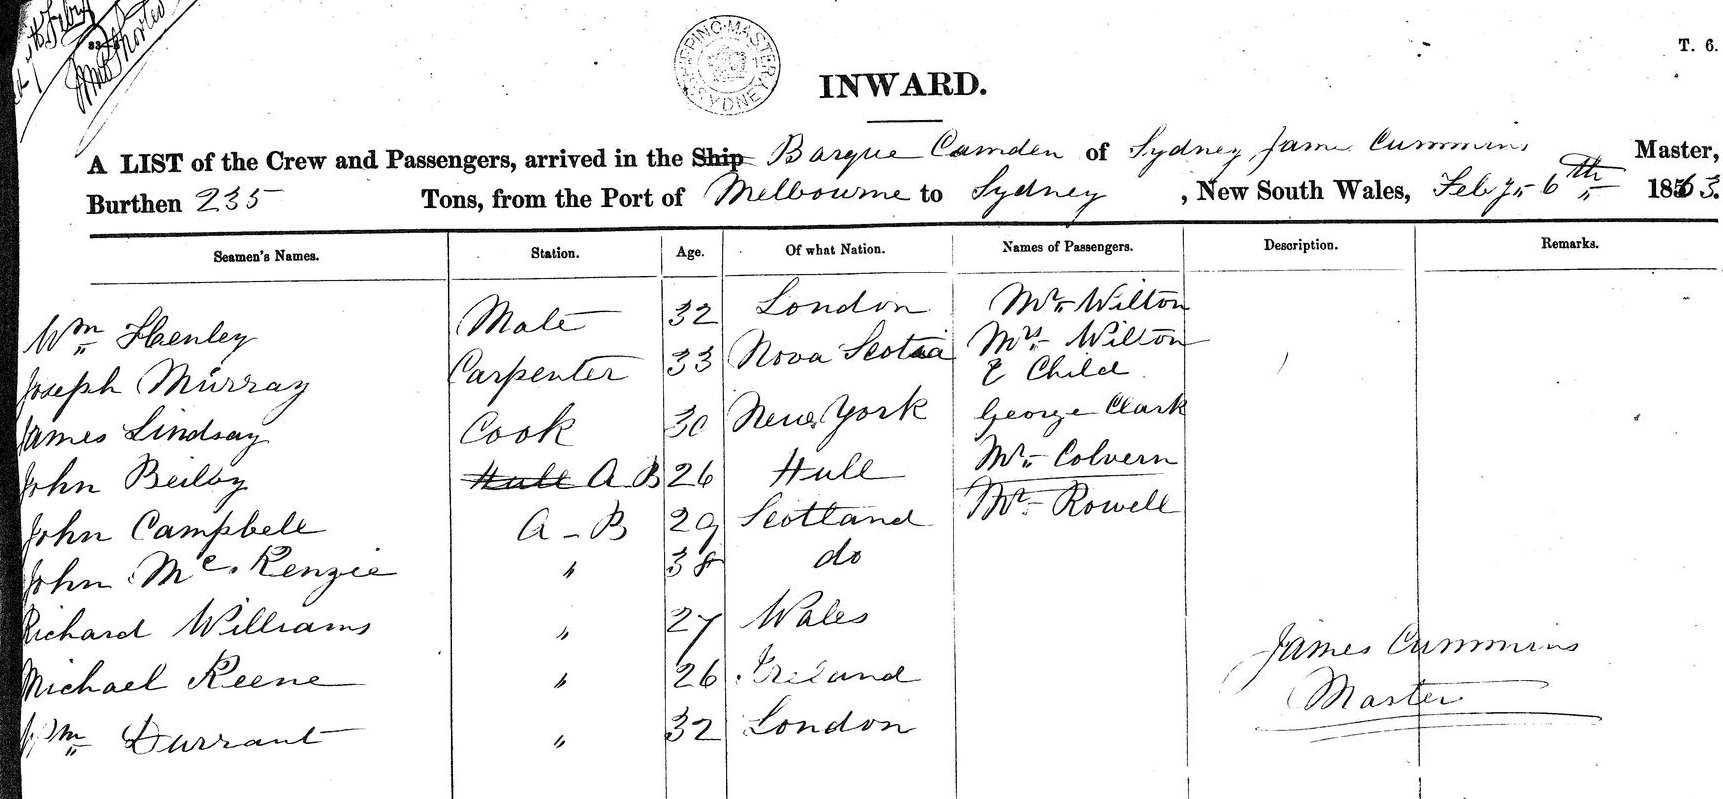 83
T. 6.
SHIPPING MASTER SYDNEY
INWARD.
A LIST of the Crew and Passengers, arrived in the Ship Barque Camden of Sydney, James Cummins Master,
Burthen 235 Tons, from the Port of Melbourne to Sydney, New South Wales, Feby 6th 1863.
Seamen's Names. Station. Age. Of what Nation. Names of Passengers. Description. Remarks.
Wm Henley Mate 32 London Mr Wilton
Joseph Murray Carpenter 33 Nova Scotia Mrs Wilton
& Child
James Lindsay Cook 30 New York George Clark
John Beilby Hull A B 26 Hull Mr Colvern
John Campbell A - B 29 Scotland Mr Rowell
John McKenzie " 38 do
Richard Williams " 27 Wales
Michael Keene " 26 Ireland
Wm Durrant " 32 London
James Cummins
Master